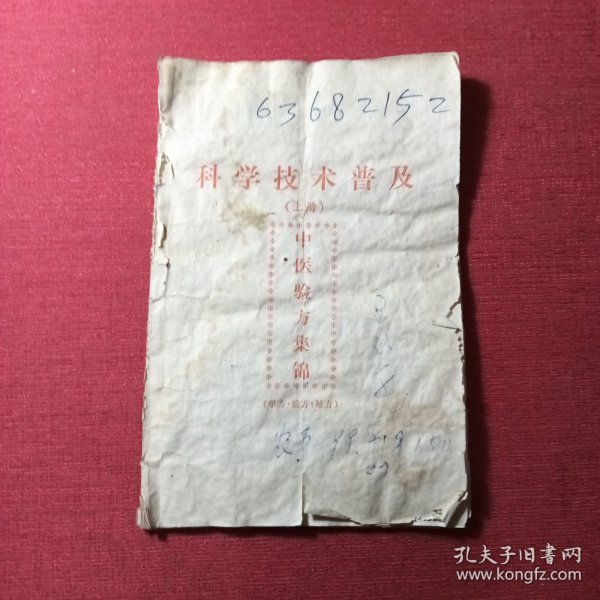 63682152
科学技术普及
（上册）
中医验方集锦
（单方·验方·秘方）
孔夫子旧书网
www.kongfz.com